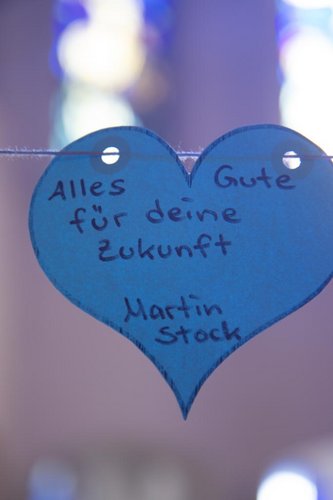 Alles Gute
für deine
Zukunft
Martin
Stock